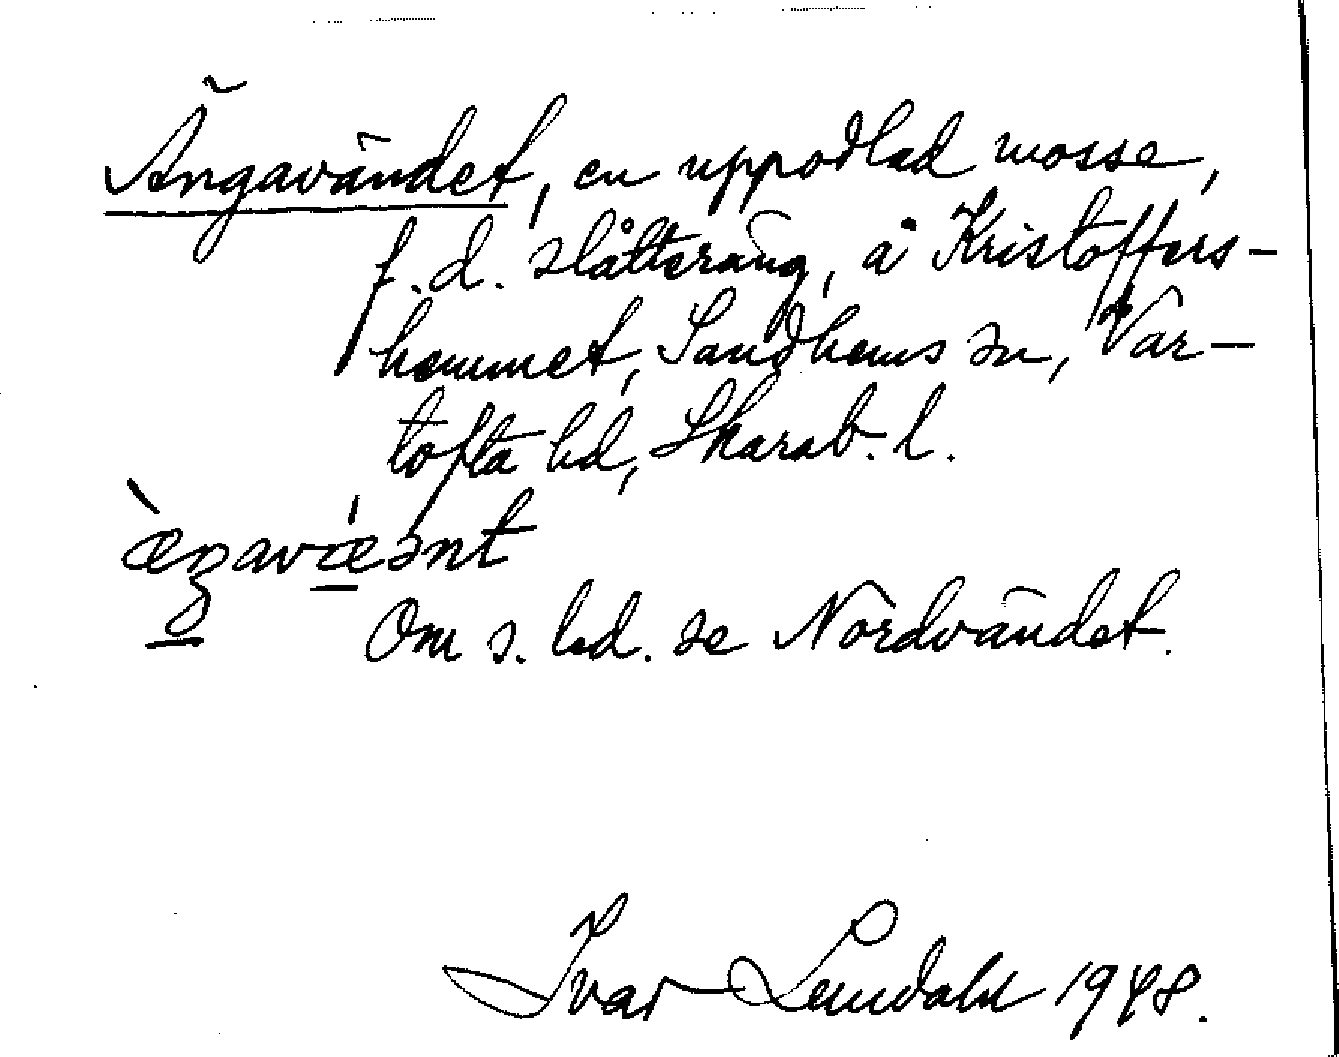 Ängavändet, en uppodlad mosse,
f.d. slåtteräng, å Kristoffers-
hemmet, Sandhems sn, Var-
tofta hd, Skarab. l.
æŋavæənt
Om s. led. se Nordvändet.
Ivar Lundahl 1948.